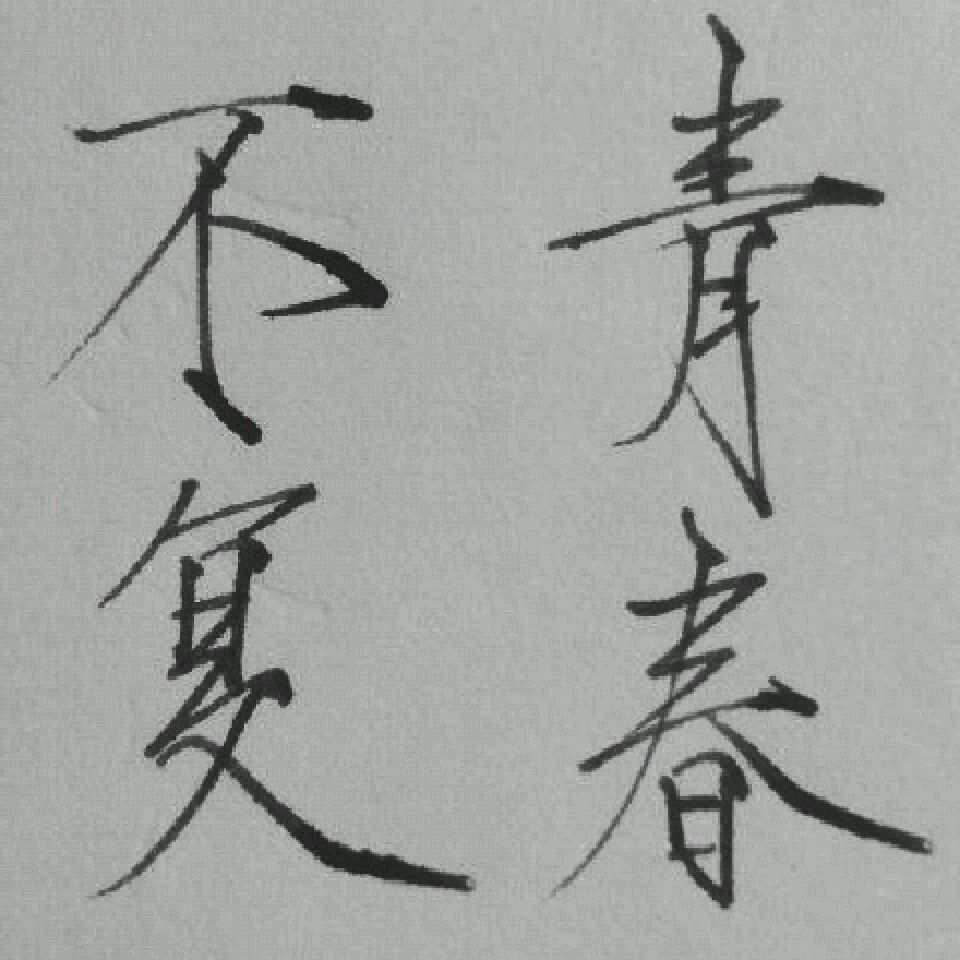 青春
不复